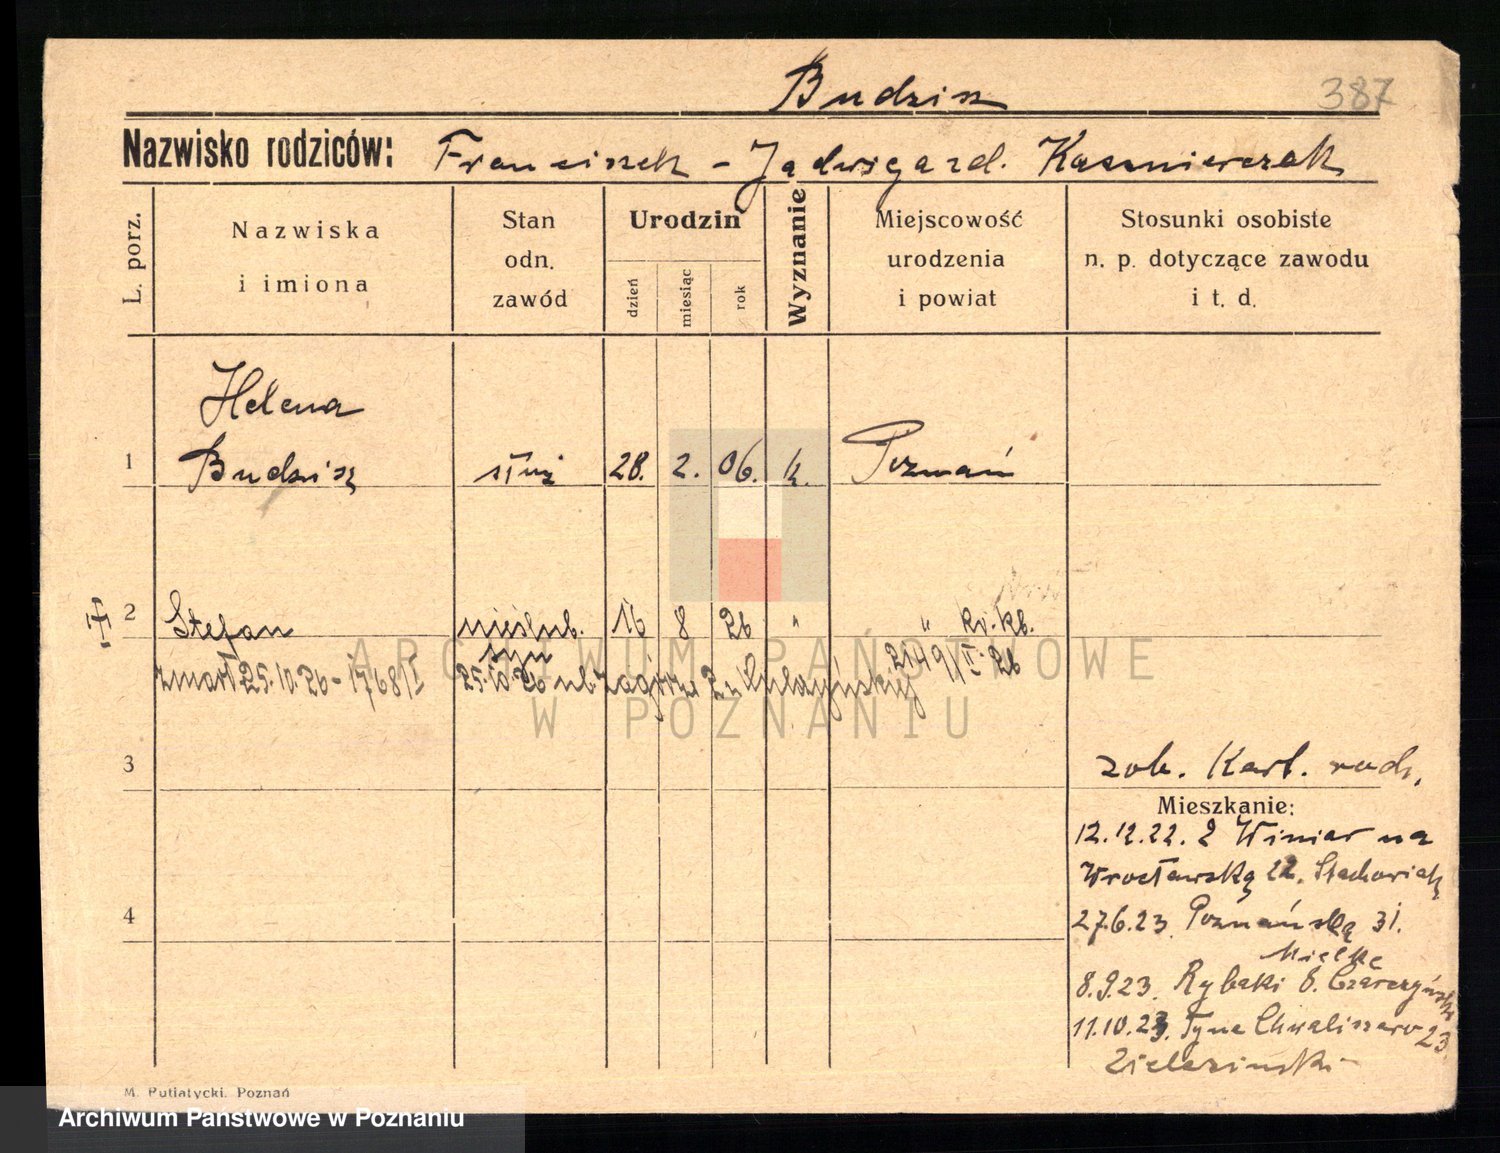 Budzisz
387
Nazwisko rodziców: Franciszek - Jadwiga zd. Kaczmierczak
L. porz.
Nazwiska
i imiona
Stan
odn.
zawód
Urodzin
dzień
miesiąc
rok
Wyznanie
Miejscowość
urodzenia
i powiat
Stosunki osobiste
n. p. dotyczące zawodu
i t. d.
Helena
1 Budzisz służ 28. 2. 06. k. Poznań
2 Stefan nieślub. 16 8 26 " " Kr. kb.
syn 2149/II 26
zmarł 25.10.26 - 1768/I 25.10.26 ub.
3
zob. Kart. rodz.
Mieszkanie:
12.12.22. z Winiar na
Wrocławską 22. Stachowiak
4
27.6.23. Poznańską 31.
Mielke
8.9.23. Rybaki 8. Czarczyński
11.10.23. Tyne Chwaliszewo 23
Zielezinski
M. Putiatycki, Poznań
ARCHIWUM PAŃSTWOWE
W POZNANIU
Archiwum Państwowe w Poznaniu